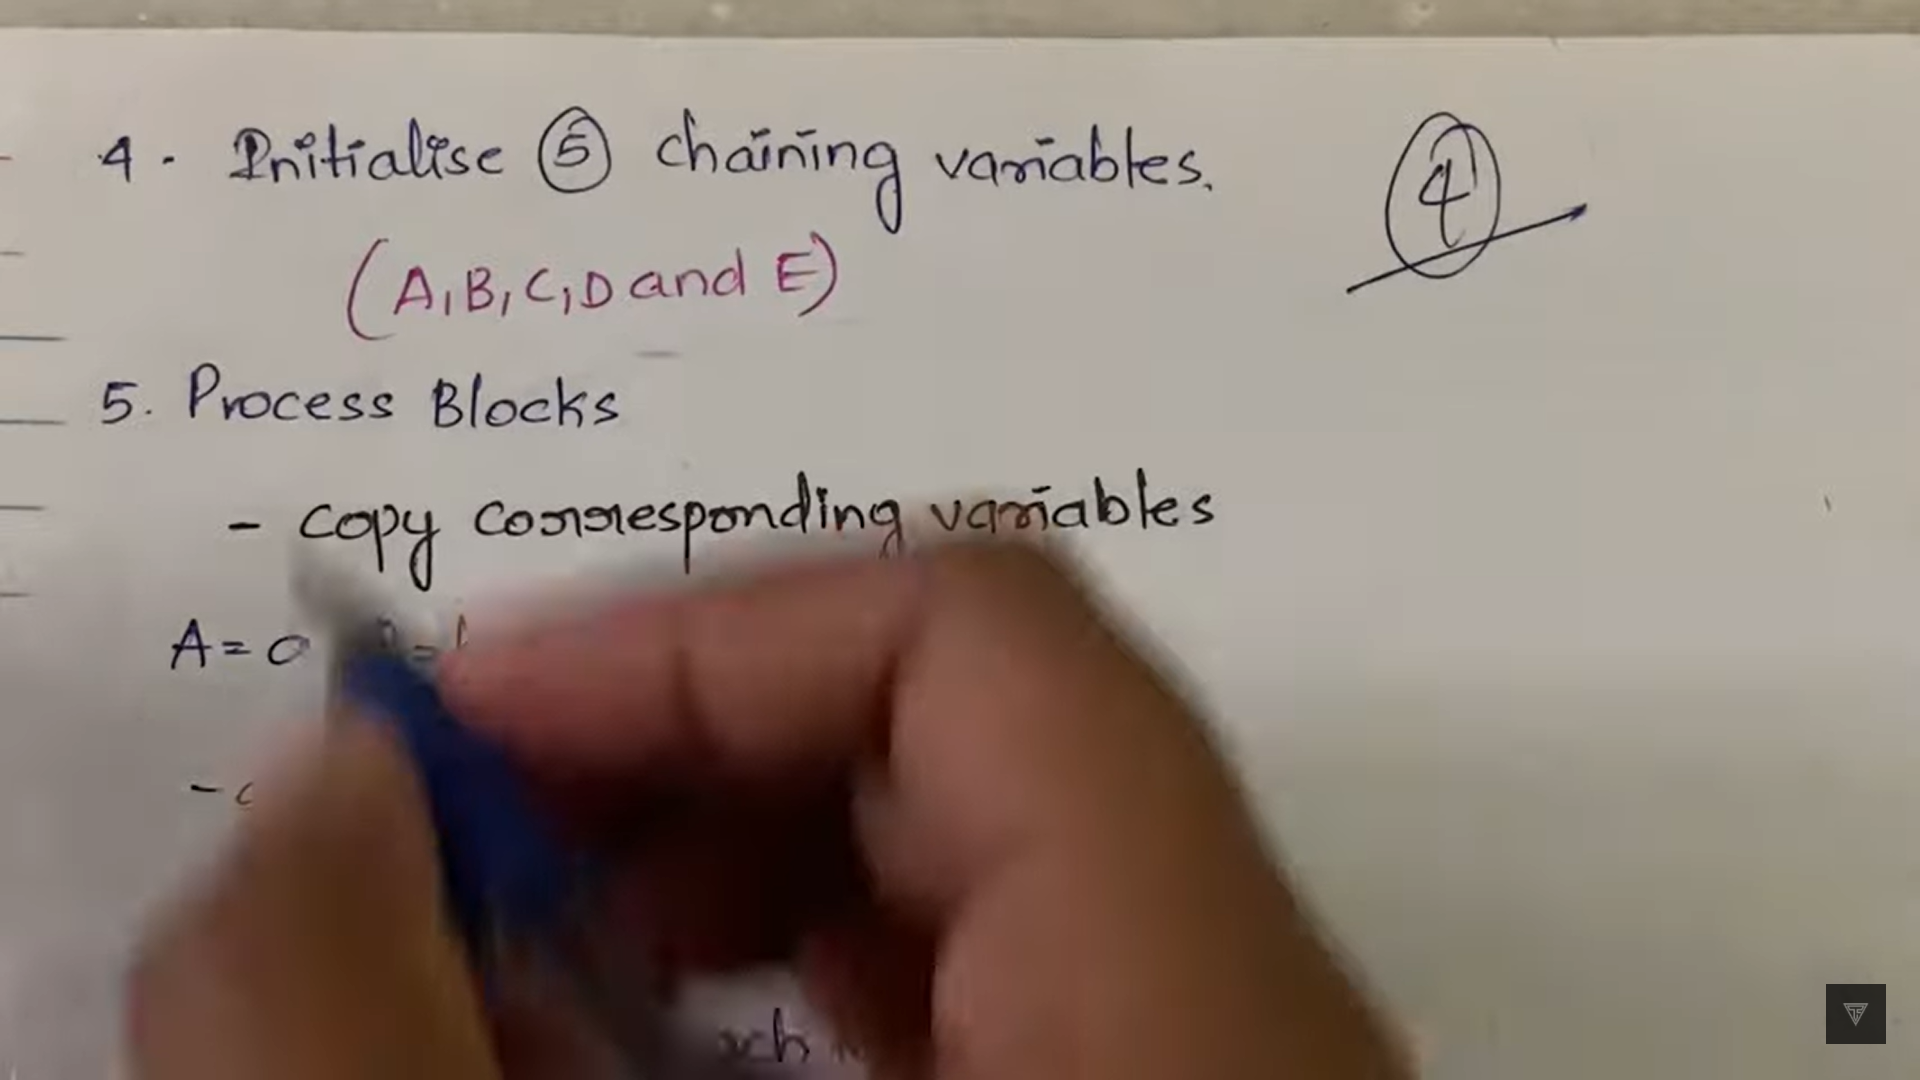 4. Initialise 5 chaining variables.
4
(A, B, C, D and E)
5. Process Blocks
- copy corresponding variables
A = a